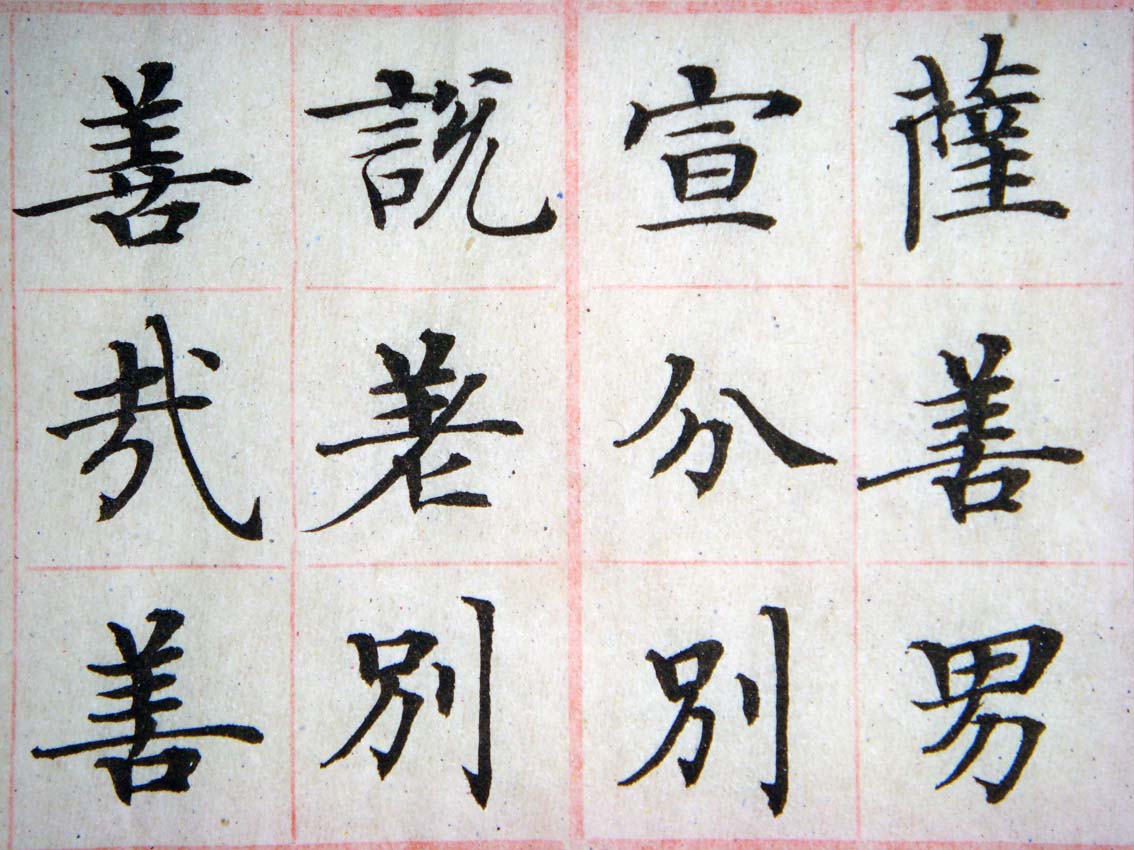 薩善男
宣分別
説差別
善哉善